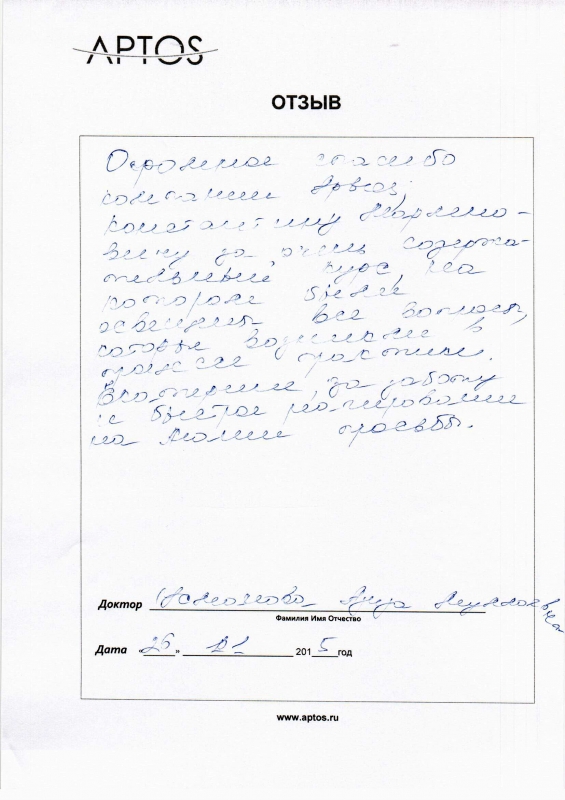 APTOS
ОТЗЫВ
Огромное спасибо
компании Аптос,
Константину
вичу за очень содержа-
тельный курс, на
котором были
освещены все вопросы,
которые возникали в
процессе практики.
Екатерине, за заботу
и быстрое реагирование
на любые просьбы.
Доктор
Фамилия Имя Отчество
Дата "26" 01 2015 год
www.aptos.ru